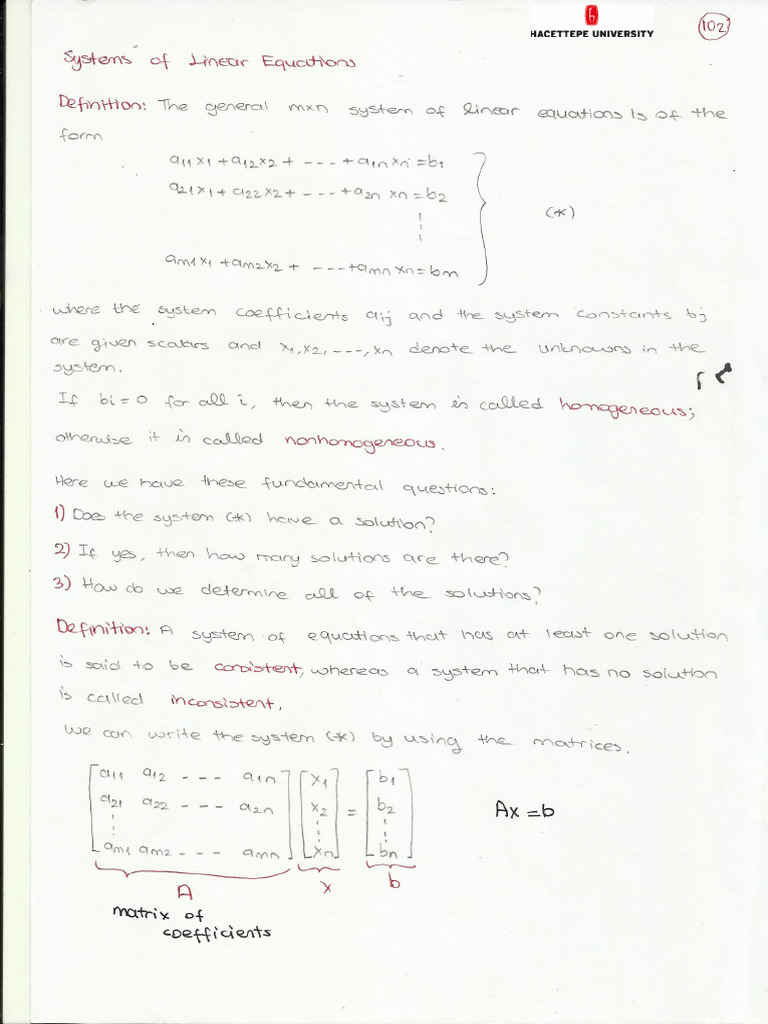 HACETTEPE UNIVERSITY
102
Systems of Linear Equations
Definition: The general mxn system of linear equations is of the
form
a11 x1 + a12 x2 + --- + a1n xn = b1
a21 x1 + a22 x2 + --- + a2n xn = b2
(*)
am1 x1 + am2 x2 + --- + amn xn = bm
where the system coefficients aij and the system constants bj
are given scalars and x1, x2, ---, xn denote the unknowns in the
system.
If bi = 0 for all i, then the system is called homogeneous;
otherwise it is called nonhomogeneous.
Here we have these fundamental questions:
1) Does the system (*) have a solution?
2) If yes, then how many solutions are there?
3) How do we determine all of the solutions?
Definition: A system of equations that has at least one solution
is said to be consistent, whereas a system that has no solution
is called inconsistent.
We can write the system (*) by using the matrices.
a11 a12 --- a1n x1 b1
a21 a22 --- a2n x2 = b2 Ax = b
am1 am2 --- amn xn bn
A x b
matrix of
coefficients